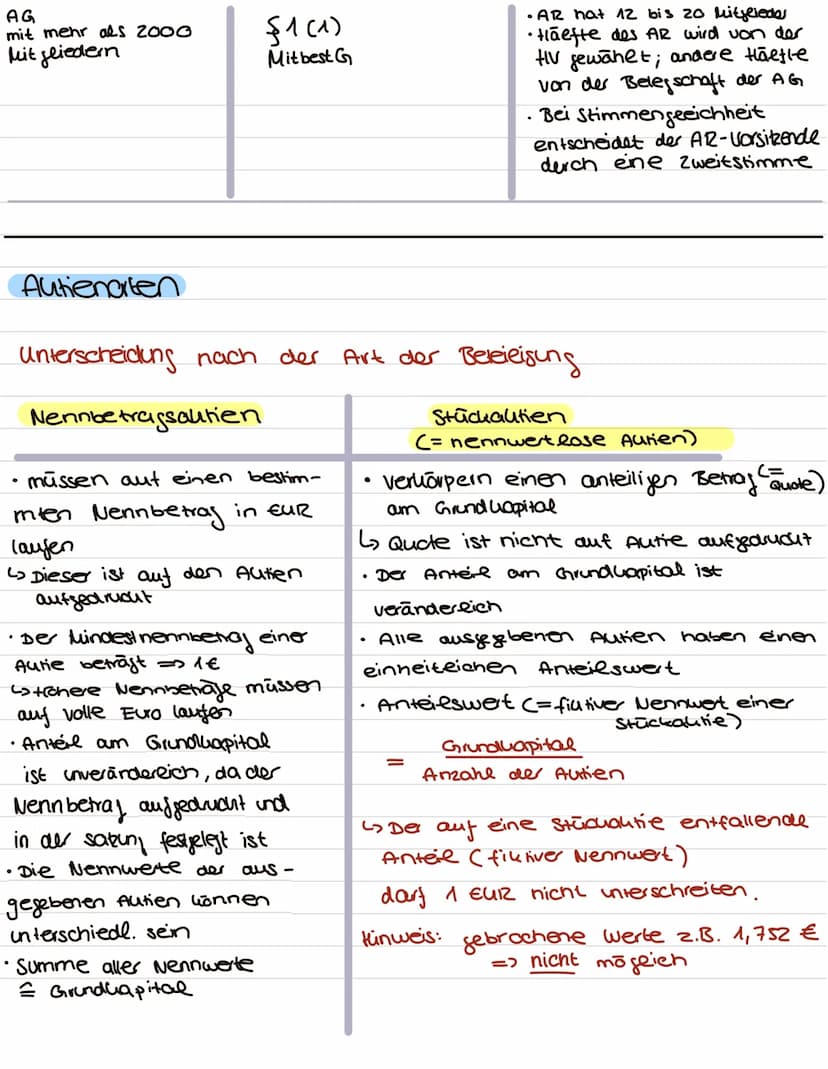 AG
mit mehr als 2000
Mitgliedern
§1 (1)
MitbestG
· AR hat 12 bis 20 Mitglieder
· Häefte des AR wird von der
HV gewählt; andere Häefte
von der Belegschaft der AG
· Bei Stimmengleichheit
entscheidet der AR-Vorsitzende
durch eine Zweitstimme
Aktienarten
Unterscheidung nach der Art der Beteiligung
Nennbetragsaktien
· müssen auf einen bestim-
mten Nennbetrag in EUR
laufen
↳ Dieser ist auf den Aktien
aufgedruckt
· Der Mindestnennbetrag einer
Aktie beträgt => 1€
↳ Höhere Nennbeträge müssen
auf volle Euro lauten
· Anteil am Grundkapital
ist unveränderlich, da der
Nennbetrag aufgedruckt und
in der Satzung festgelegt ist
· Die Nennwerte der aus-
gegebenen Aktien können
unterschiedl. sein
· Summe aller Nennwerte
≙ Grundkapital
Stückaktien
(= nennwertlose Aktien)
· verkörpern einen anteiligen Betrag (= Quote)
am Grundkapital
↳ Quote ist nicht auf Aktie aufgedruckt
· Der Anteil am Grundkapital ist
veränderlich
· Alle ausgegebenen Aktien haben einen
einheitlichen Anteilswert
· Anteilswert (= fiktiver Nennwert einer
Stückaktie)
= Grundkapital
Anzahl der Aktien
↳ Der auf eine Stückaktie entfallende
Anteil (fiktiver Nennwert)
darf 1 EUR nicht unterschreiten.
Hinweis: gebrochene Werte z.B. 1,752 €
=> nicht möglich